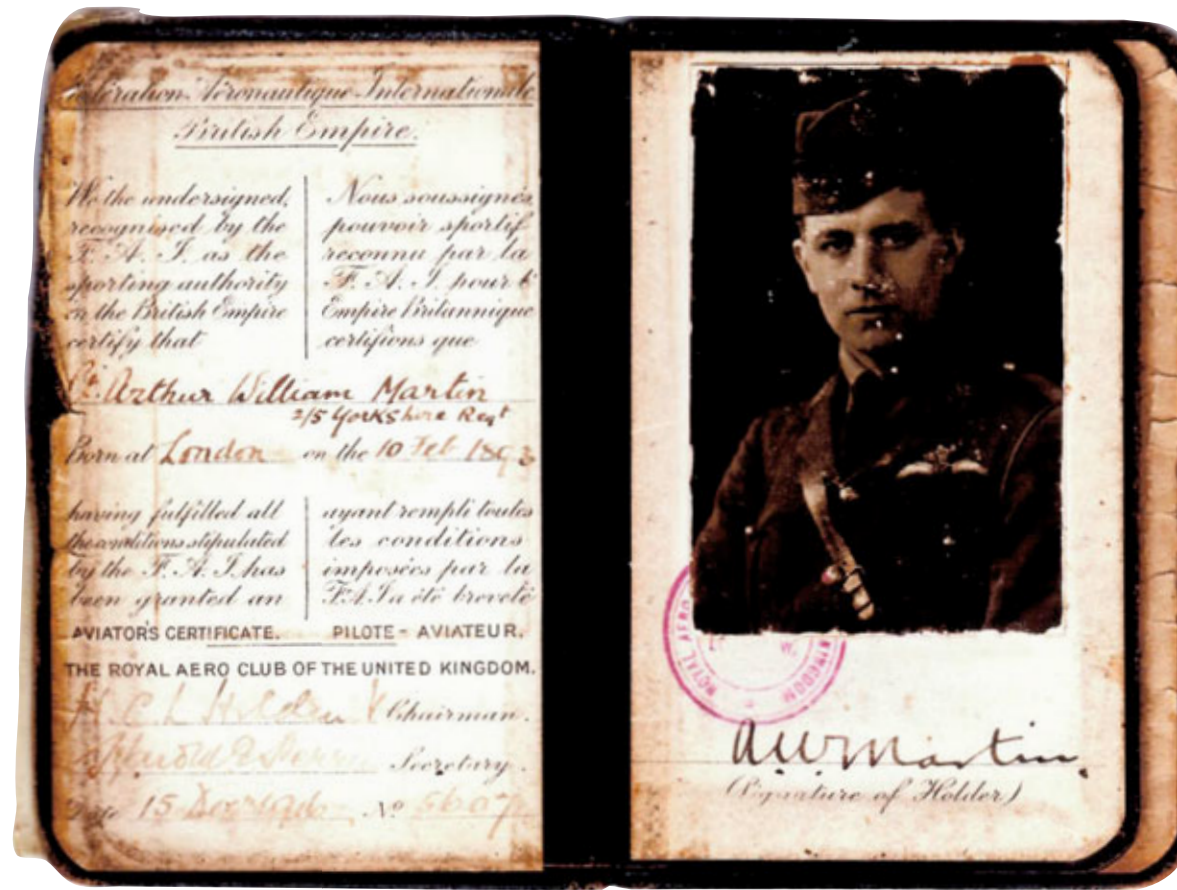 Fédération Aéronautique Internationale
British Empire.
We the undersigned,
recognised by the
F. A. I. as the
sporting authority
in the British Empire
certify that
Nous soussignés
pouvoir sportif
reconnu par la
F. A. I. pour l'
Empire Britannique
certifions que
Lt. Arthur William Martin
2/5 Yorkshire Regt
Born at London on the 10 Feb 1893
having fulfilled all
the conditions stipulated
by the F. A. I. has
been granted an
ayant rempli toutes
les conditions
imposées par la
F.A.I. a été breveté
AVIATOR'S CERTIFICATE. PILOTE-AVIATEUR.
THE ROYAL AERO CLUB OF THE UNITED KINGDOM.
Chairman.
Secretary.
Date 15 1916 No
ROYAL AERO
KINGDOM
A.W. Martin.
(Signature of Holder)